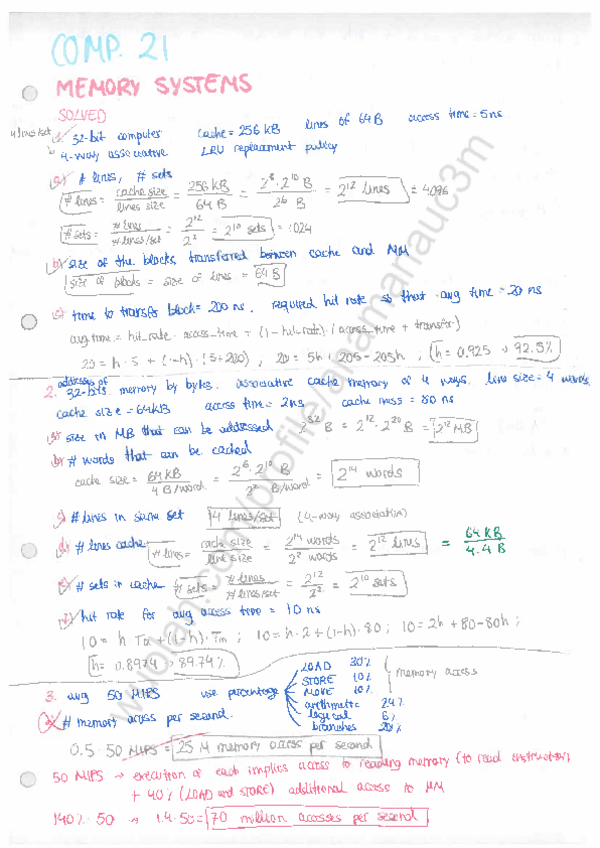 COMP. 21
MEMORY SYSTEMS
SOLVED
4 lines/set
1. 32-bit computer cache = 256 kB lines of 64 B access time = 5 ns
4-way associative LRU replacement policy
a) # lines, # sets
# lines = cache size / lines size = 256 kB / 64 B = 2⁸ · 2¹⁰ B / 2⁶ B = 2¹² lines = 4096
# sets = # lines / # lines/set = 2¹² / 2² = 2¹⁰ sets = 1024
b) size of the blocks transferred between cache and MM
size of blocks = size of lines = 64 B
c) time to transfer block = 200 ns. required hit rate so that avg time = 20 ns
avg time = hit_rate · access_time + (1-hit_rate) · (access_time + transfer)
20 = h · 5 + (1-h) · (5+200) , 20 = 5h + 205 - 205h , h = 0.925 → 92.5%
addresses of
2. 32-bits memory by bytes. associative cache memory of 4 ways. line size = 4 words
cache size = 64kB access time = 2ns cache miss = 80 ns
a) size in MB that can be addressed 2³² B = 2¹² · 2²⁰ B = 2¹² MB
b) # words that can be cached
cache size = 64 kB / 4 B/word = 2⁶ · 2¹⁰ B / 2² B/word = 2¹⁴ words
c) # lines in same set 4 lines/set (4-way association)
d) # lines cache # lines = cache size / line size = 2¹⁴ words / 2² words = 2¹² lines = 64 kB / 4·4 B
e) # sets in cache # sets = # lines / # lines/set = 2¹² / 2² = 2¹⁰ sets
f) hit rate for avg access time = 10 ns
10 = h Ta + (1-h) · Tm ; 10 = h · 2 + (1-h) · 80 ; 10 = 2h + 80 - 80h ;
h = 0.8974 → 89.74%
3. avg 50 MIPS use percentage LOAD 30%
STORE 10%
MOVE 10%
memory access
arithmetic 24%
logical 6%
branches 20%
a) # memory access per second.
0.5 · 50 MIPS = 25 M memory access per second
50 MIPS → execution of each implies access to reading memory (to read instruction)
+ 40% (LOAD and STORE) additional access to MM
140% · 50 → 1.4 · 50 = 70 million accesses per second
wuolah.com/profile/anamarauc3m